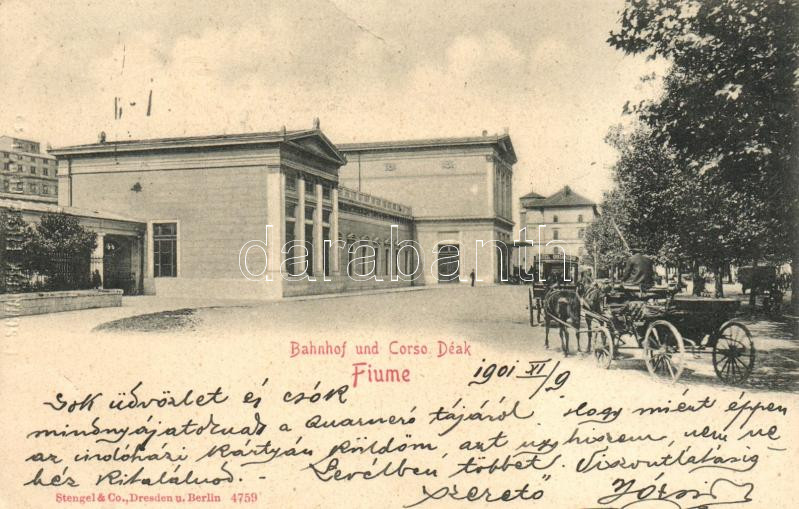 darabanth
Bahnhof und Corso Déak
Fiume
1901 XI/9
Sok üdvözlet és csók
mindnyájatoknak a Quarneró tájáról. Hogy miért éppen
az indóházi kártyán küldöm, azt úgy hiszem, nem ne-
héz kitalálnod. - Levélben többet. Viszontlátásig
szerető
Stengel & Co., Dresden u. Berlin 4759